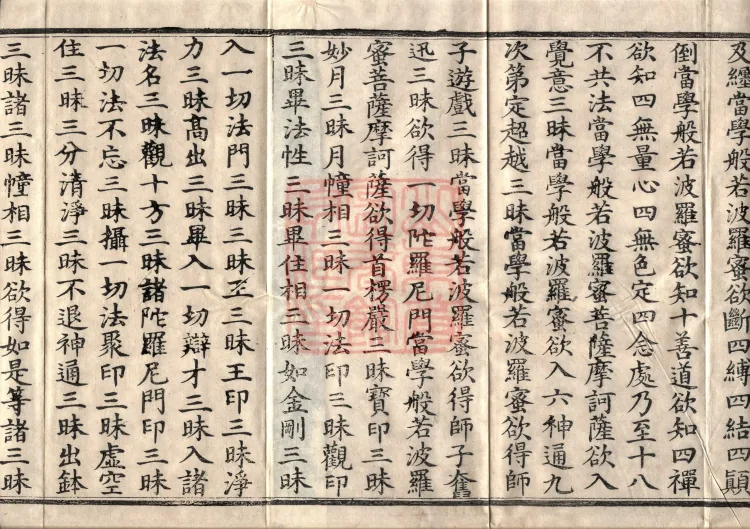 及纏當學般若波羅蜜欲斷四縛四結四顛
倒當學般若波羅蜜欲知十善道欲知四禪
欲知四無量心四無色定四念處乃至十八
不共法當學般若波羅蜜菩薩摩訶薩欲入
覺意三昧當學般若波羅蜜欲入六神通九
次第定超越三昧當學般若波羅蜜欲得師
子遊戲三昧當學般若波羅蜜欲得師子奮
迅三昧欲得一切陀羅尼門當學般若波羅
蜜菩薩摩訶薩欲得首楞嚴三昧寶印三昧
妙月三昧月幢相三昧一切法印三昧觀印
三昧畢法性三昧畢住相三昧如金剛三昧
入一切法門三昧三昧至三昧王印三昧淨
力三昧高出三昧畢入一切辯才三昧入諸
法名三昧觀十方三昧諸陀羅尼門印三昧
一切法不忘三昧攝一切法聚印三昧虛空
住三昧三分清淨三昧不退神通三昧出鉢
三昧諸三昧幢相三昧欲得如是等諸三昧